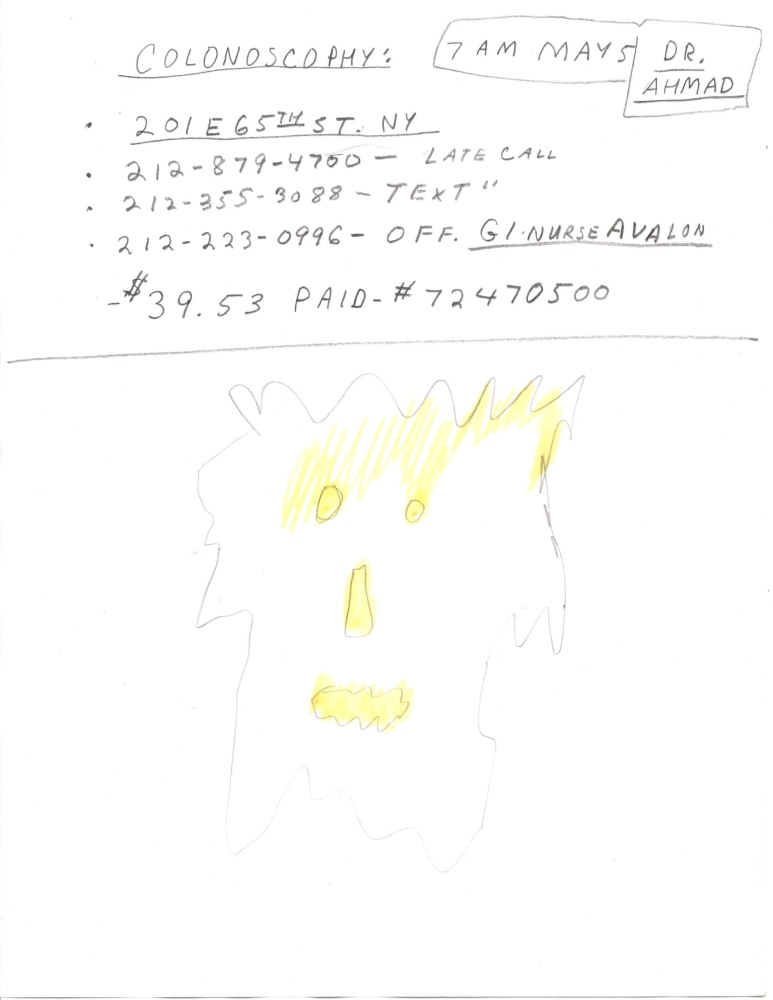 COLONOSCOPHY: 7 AM MAY 5 DR. AHMAD
• 201 E 65TH ST. NY
• 212-879-4700 - LATE CALL
• 212-355-3088 - TEXT "
• 212-223-0996 - OFF. GI NURSE AVALON
- $39.53 PAID - # 72470500